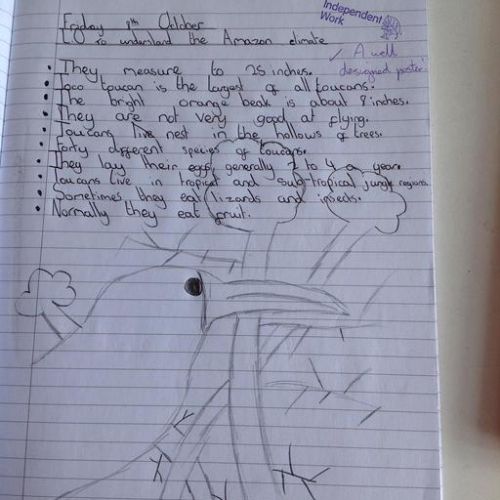 Independent
Work
Friday 8th October
To understand the Amazon climate
✓ A well
designed poster.
• They measure to 25 inches.
• Toco toucan is the largest of all toucans.
• The bright orange beak is about 8 inches.
• They are not very good at flying.
• Toucans live nest in the hollows of trees.
• Forty different species of toucans.
• They lay their eggs generally 2 to 4 a year.
• Toucans live in tropical and sub-tropical jungle regions.
• Sometimes they eat lizards and insects.
• Normally they eat fruit.